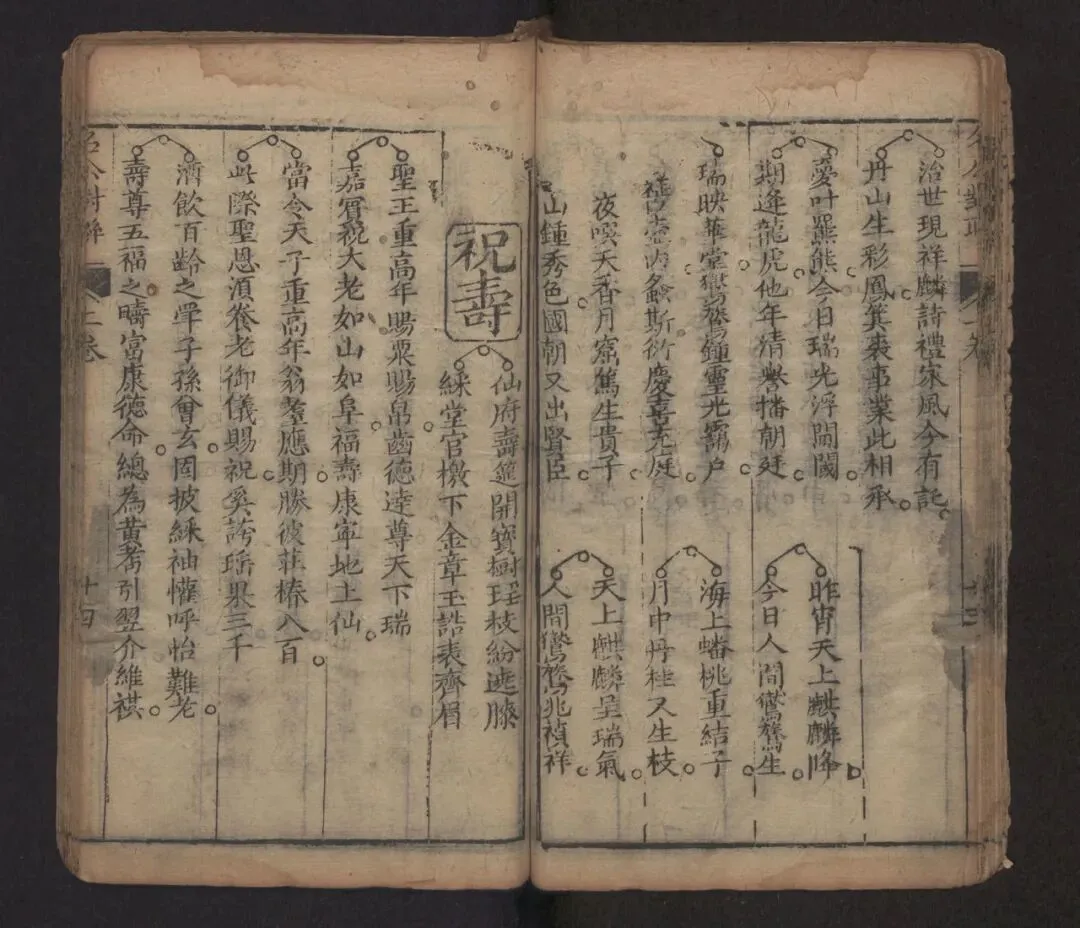 治世現祥麟詩禮家風今有託
丹山生彩鳳箕裘事業此相承
夢叶羆熊今日瑞光浮閭閾
期逢龍虎他年清譽播朝廷
瑞映華堂鸑鷟鍾靈光靄户
斯衍慶喜充庭
夜喚天香月窟篤生貴子
山鍾秀色國朝又出賢臣
昨宵天上麒麟降
今日人間鸑鷟生
海上蟠桃重結子
月中丹桂又生枝
天上麒麟呈瑞氣
人間鸑鷟兆禎祥
祝壽
仙府壽筵開寶樹瑶枝紛遶膝
綵堂官檄下金章玉誥表齊眉
聖王重高年賜粟賜帛齒德達尊天下瑞
嘉賓祝大老如山如阜福壽康寧地上仙
當今天子重高年翁耋應期勝彼莊椿八百
此際聖恩湏養老御儀賜祝奚誇瑶果三千
濟飲百齡之斝子孫曾玄因披綵袖懽呼怡難老
壽尊五福之疇富康德命總為黄耇引翌介維祺
上卷
十四